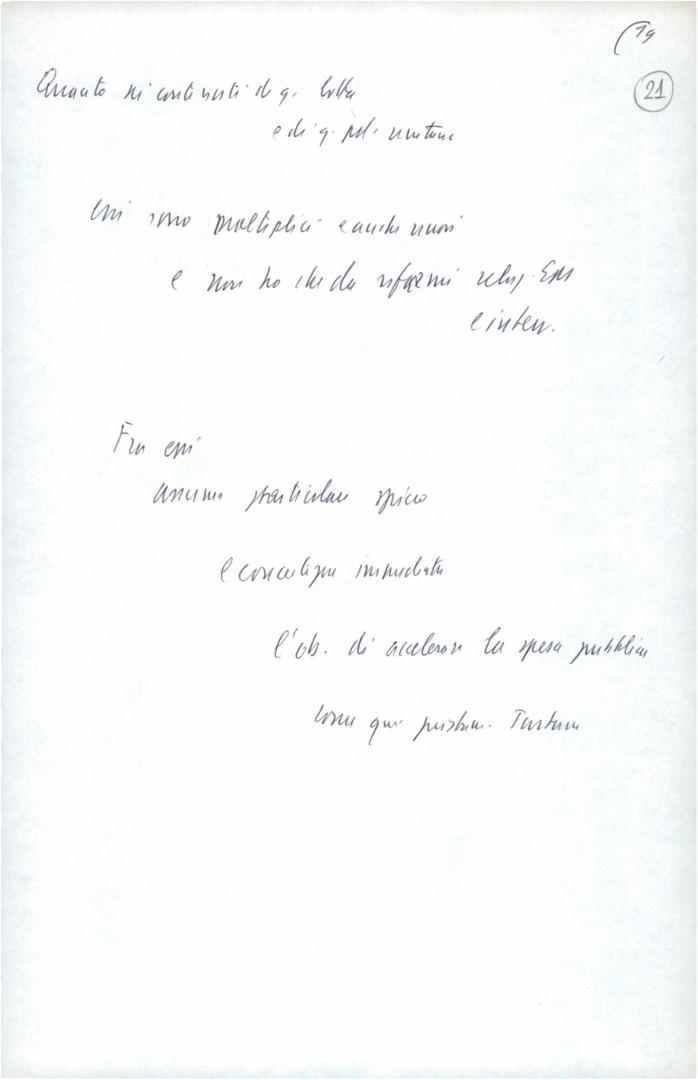 19
21
Quanto ai contenuti di q. lotta
e di q. pol. unitaria
essi sono molteplici e anche nuovi
e non ho che da rifarmi relaz.
e interv.
Fra essi
assume particolare spicco
e concretezza immediata
l'ob. di accelerare la spesa pubblica
come qui